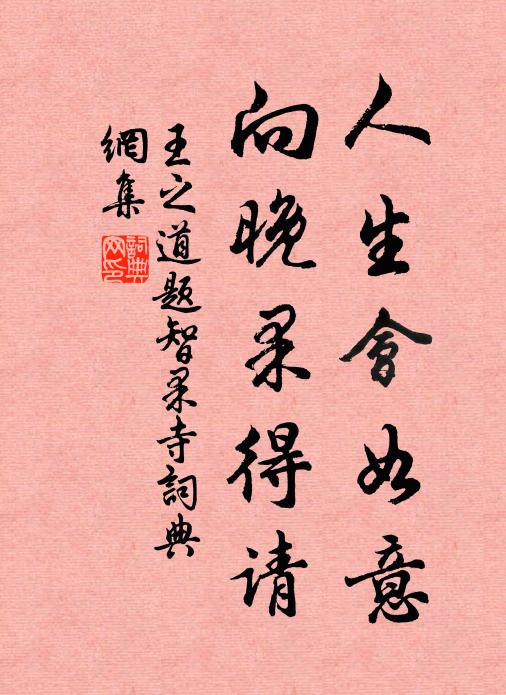 人生會如意
向晚果得请
王之道题智果寺詞典
網集
詞典
网印